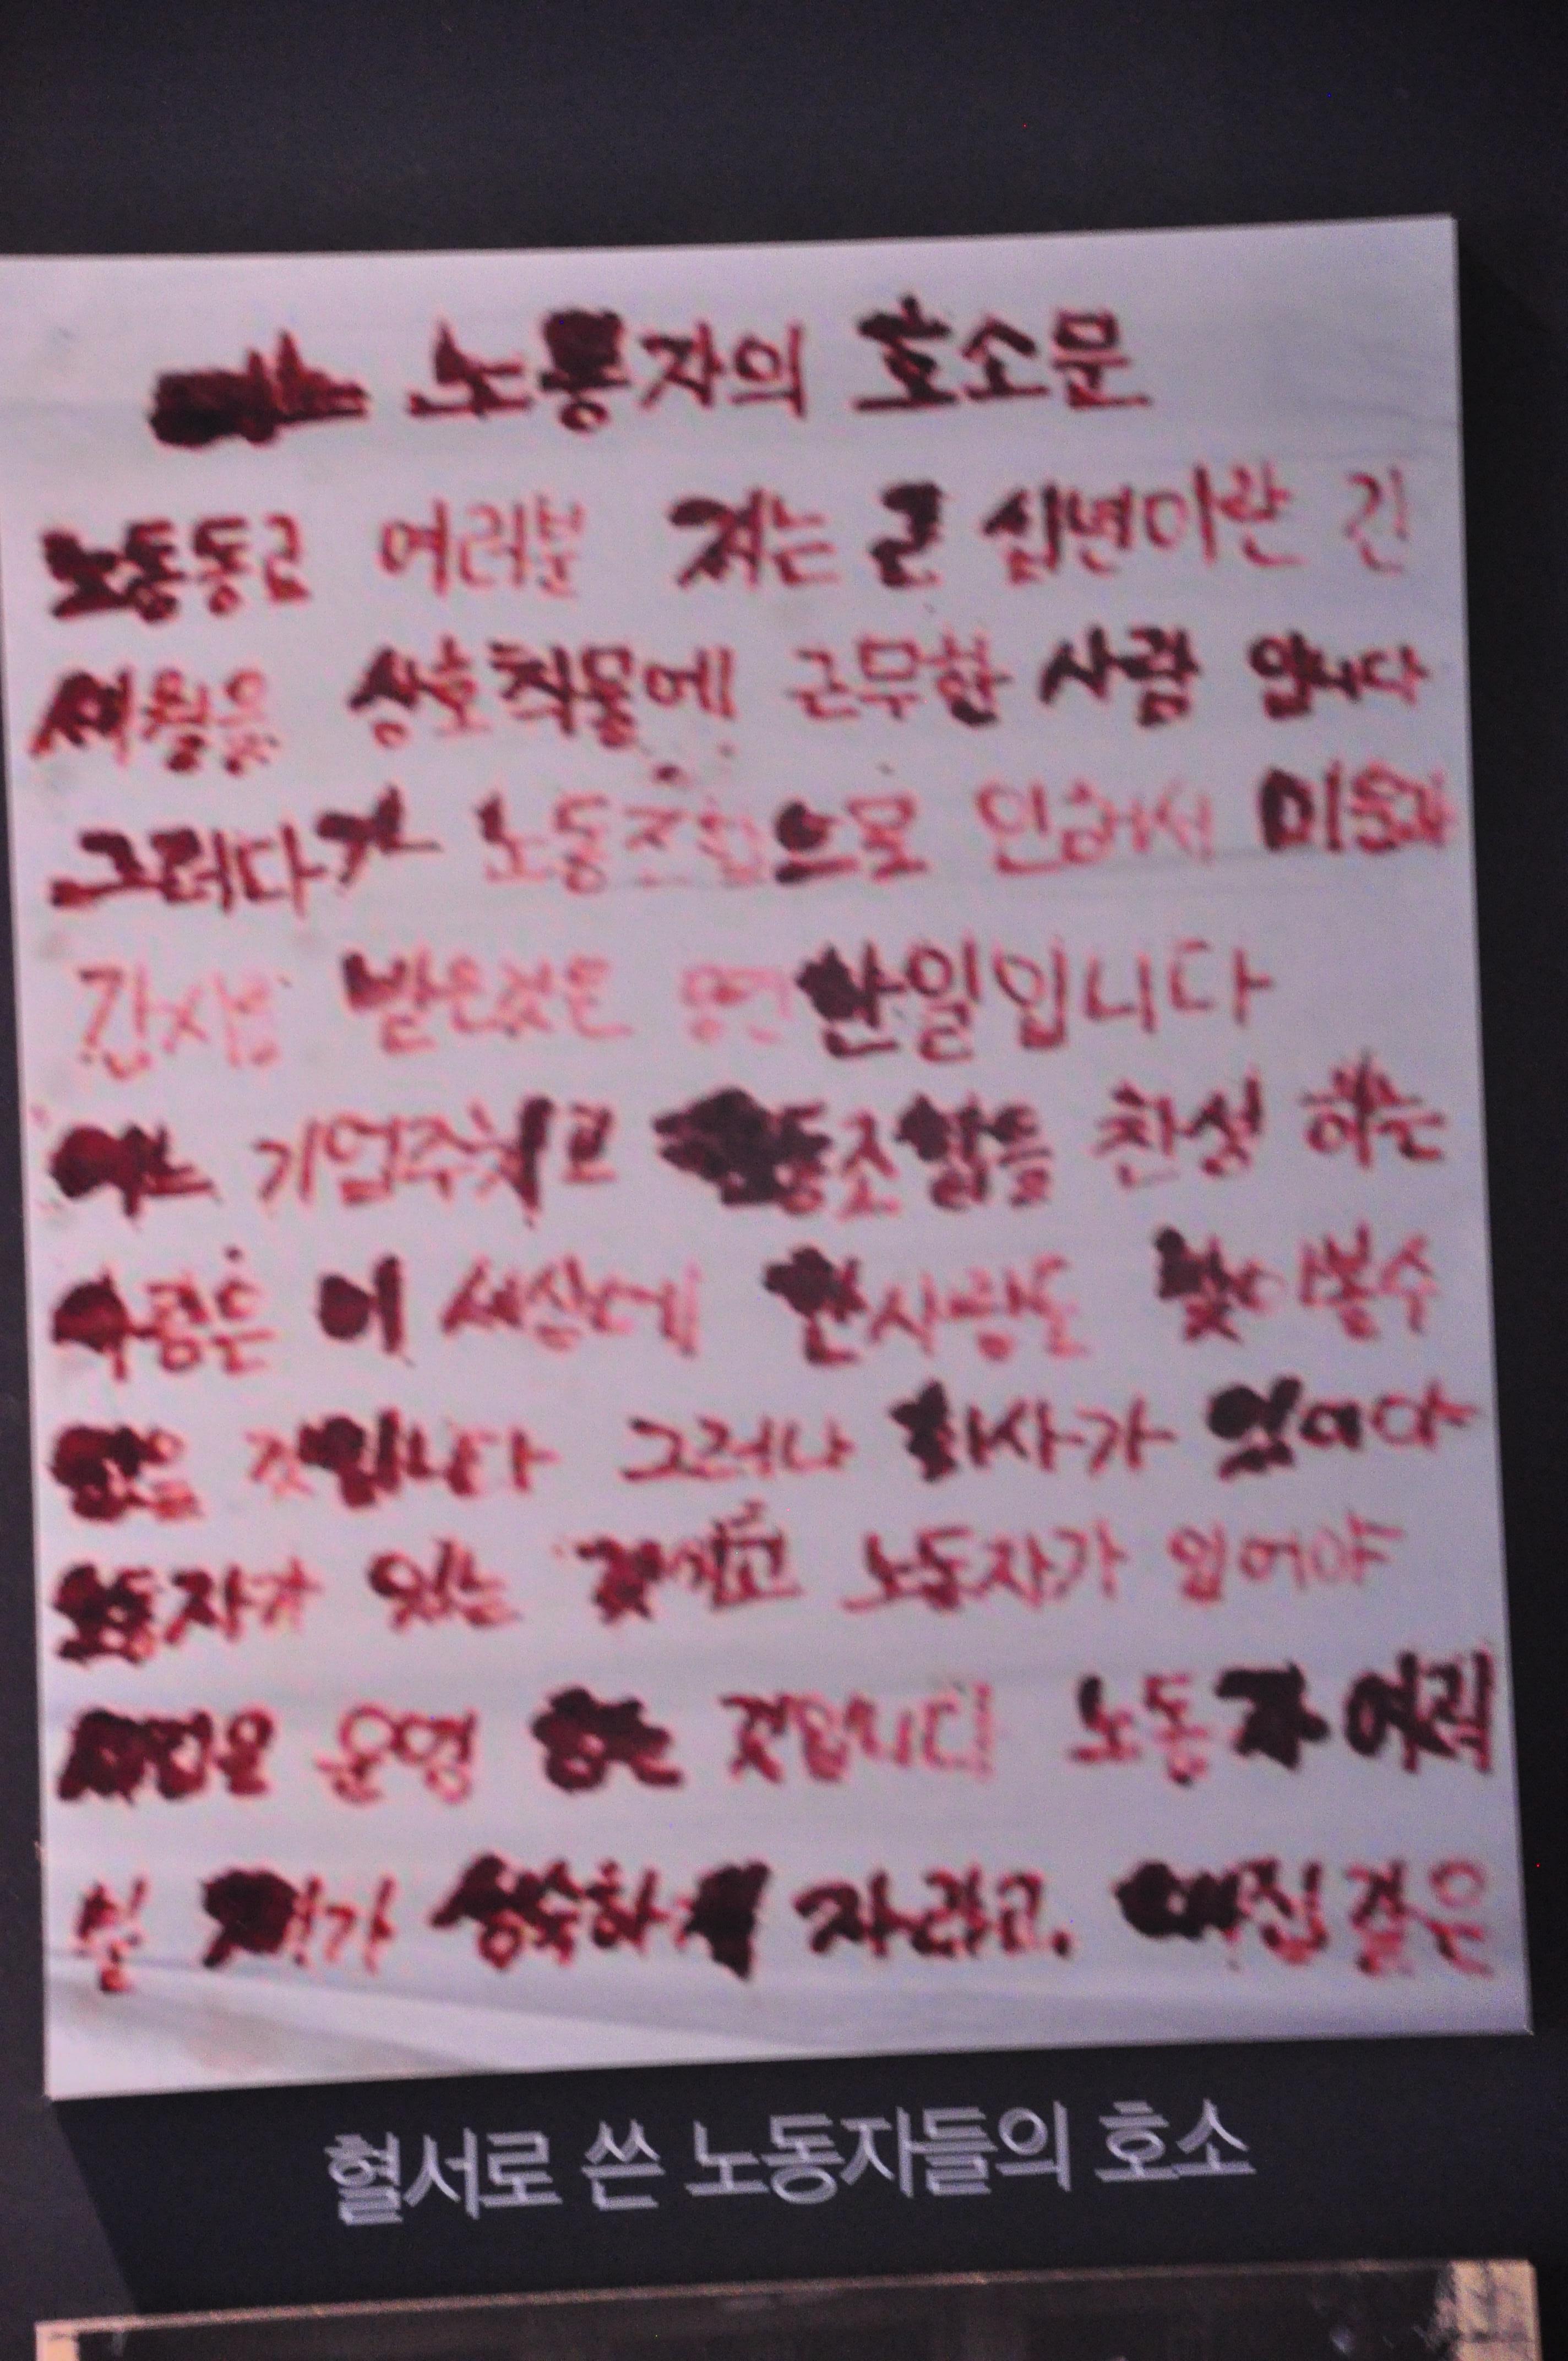 노동자의 호소문
노동동근 여러분 저는 근 십년이란 긴
직장을 상호착물에 근무한 사람 입니다
그레다가 노동조합으로 인하여서 미움과
감시를 받은것은 당연한일입니다
기업주치고 노동조합을 찬성 하는
사람은 이 세상에 한사람도 찾아볼수
없을 것입니다 그러나 회사가 있어야
노동자가 있는 것이고 노동자가 있어야
기업은 운영 할 것입니다 노동자 여러
분 제가 성숙하게 자라고. 모집같은
혈서로 쓴 노동자들의 호소